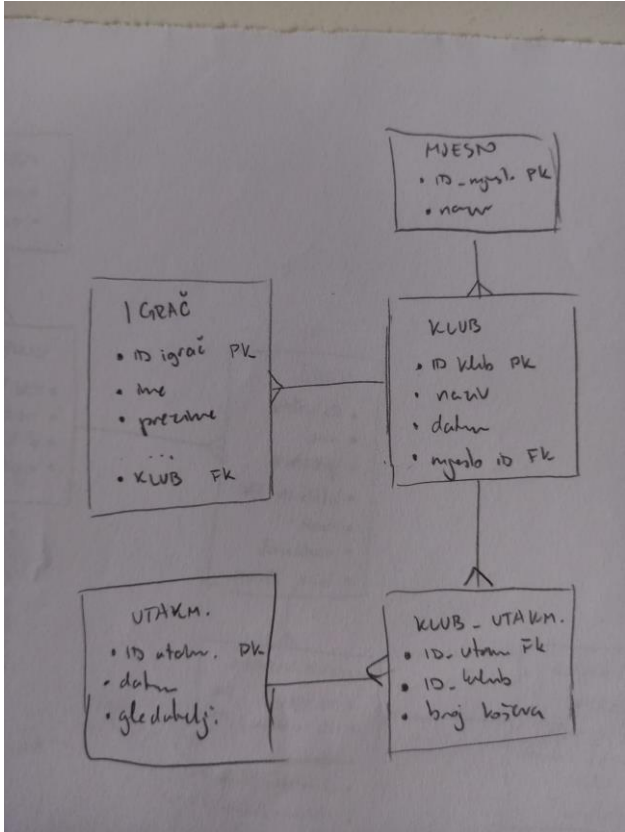 MJESTO
• ID_mjest. PK
• naziv
IGRAČ
• ID igrač PK
• ime
• prezime
...
• KLUB FK
KLUB
• ID klub PK
• naziv
• datum
• mjesto ID FK
UTAKM.
• ID utakm. PK
• datum
• gledatelj.
KLUB_UTAKM.
• ID_utakm FK
• ID_klub
• broj koševa